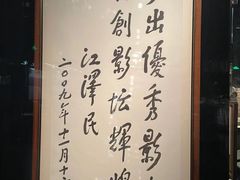 出優秀影
創影坛輝煌
江澤民
二〇〇九年十一月十